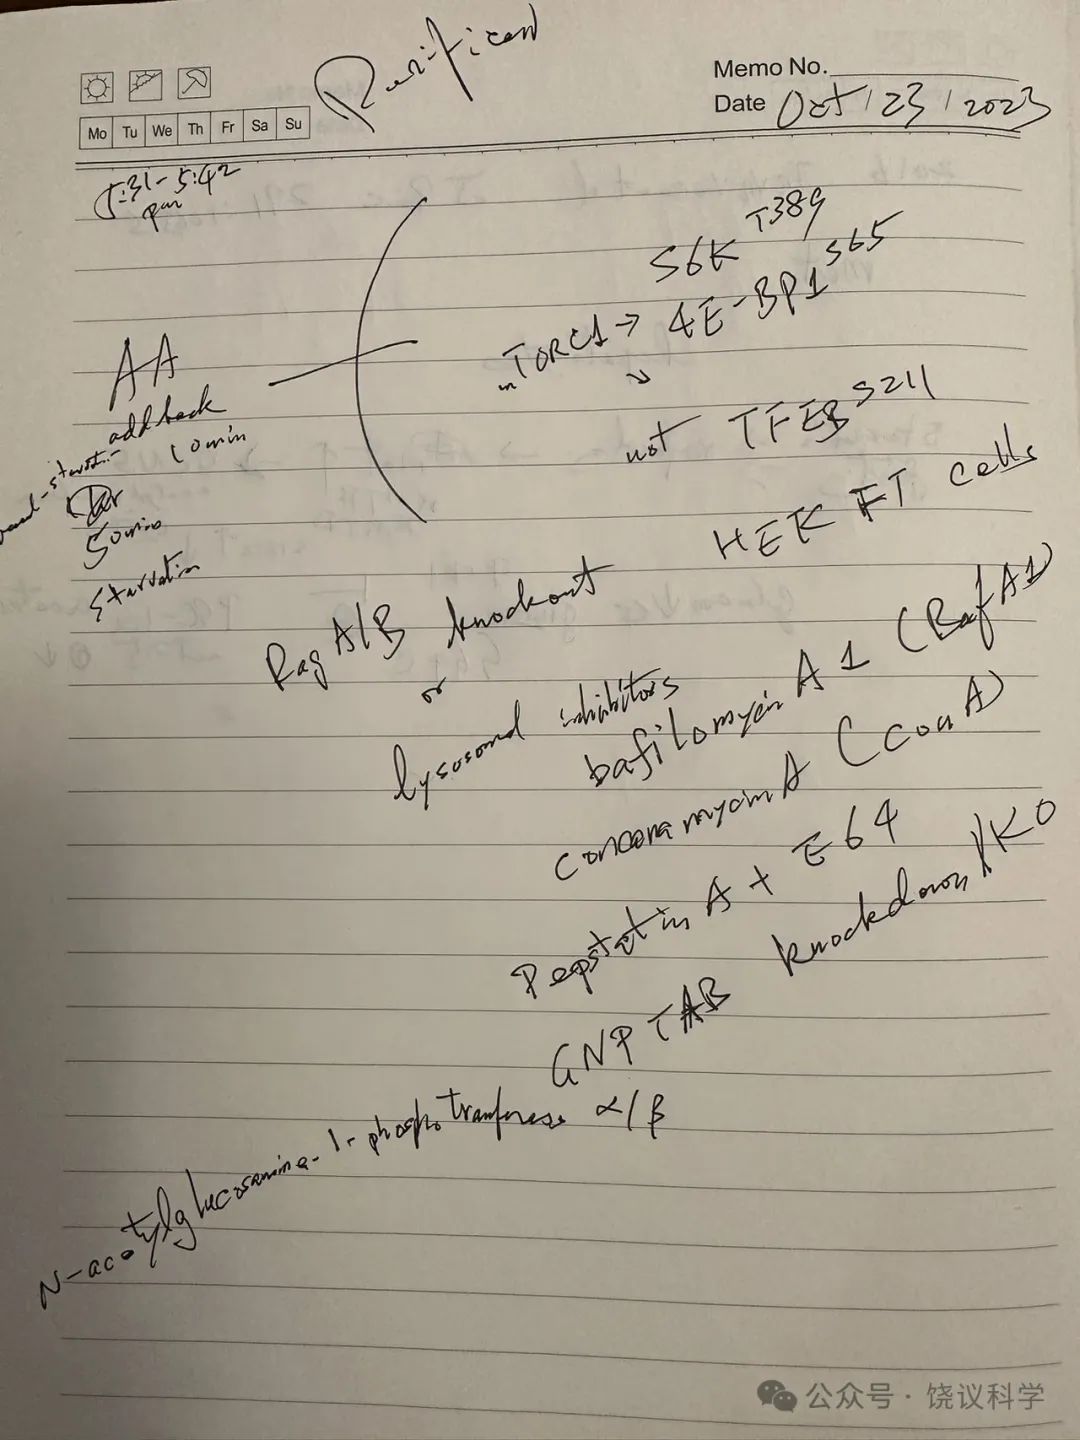 Memo No.
Date Oct / 23 / 2023
Mo Tu We Th Fr Sa Su
5:31-5:42
pm
S6K T389
mTORC1 → 4E-BP1 S65
not TFEB S211
AA
add back
10min
50min
starvation
HEK FT cells
Rag A/B knockout
or
lysosomal inhibitors
bafilomycin A1 (BafA1)
concanamycin A (conA)
Pepstatin A + E64
GNPTAB knockdown/KO
N-acetylglucosamine-1-phosphotransferase α/β
公众号·饶议科学